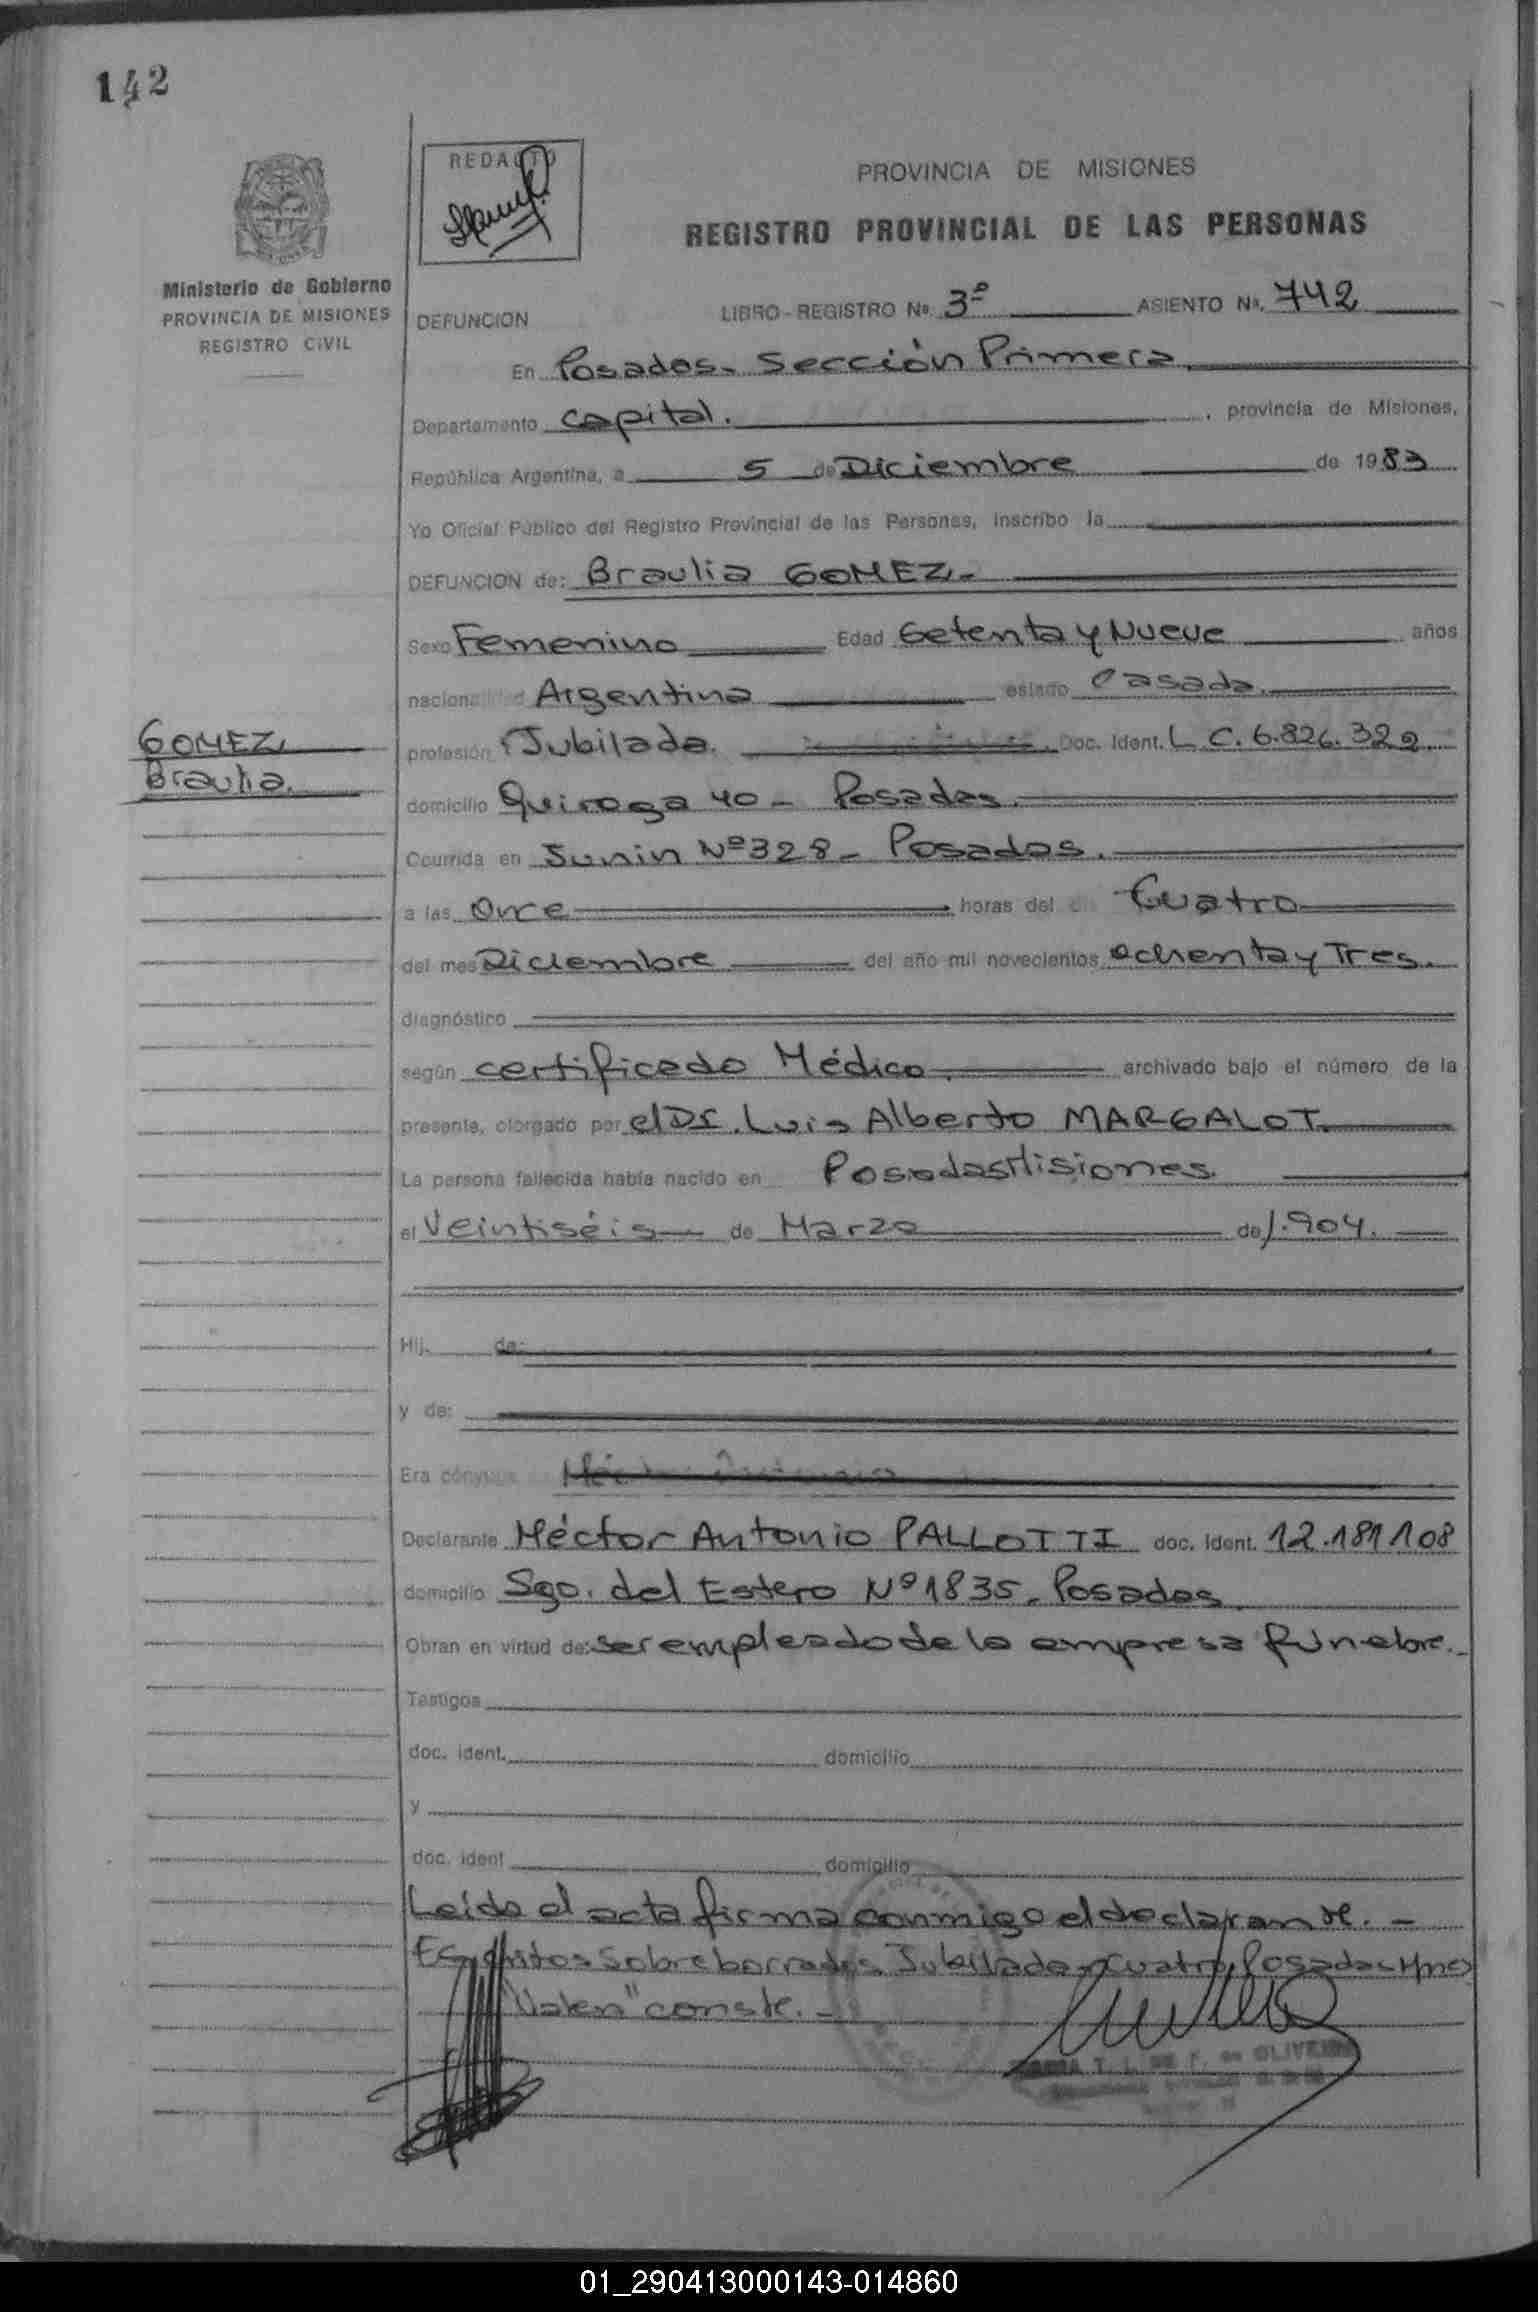 142
REDACTO
PROVINCIA DE MISIONES
REGISTRO PROVINCIAL DE LAS PERSONAS
Ministerio de Gobierno
PROVINCIA DE MISIONES
REGISTRO CIVIL
DEFUNCION LIBRO-REGISTRO Nº. 3º ASIENTO Nº. 742
En Posadas- Sección Primera
Departamento Capital. , provincia de Misiones,
República Argentina, a 5 de Diciembre de 1983
Yo Oficial Público del Registro Provincial de las Personas, inscribo la
DEFUNCION de: Braulia GOMEZ.-
Sexo Femenino Edad Setenta y Nueve años
nacionalidad Argentina estado Casada.
GOMEZ,
Braulia.
profesión Jubilada. Doc. Ident. L.C. 6.826.322
domicilio Quiroga 40 - Posadas.
Ocurrida en Junin Nº 328 - Posadas.
a las Once horas del Cuatro
del mes Diciembre del año mil novecientos ochenta y Tres.
diagnóstico
según certificado Médico. archivado bajo el número de la
presente, otorgado por el Dr. Luis Alberto MARGALOT.
La persona fallecida había nacido en Posadas Misiones.
el Veintiséis de Marzo de 1.904.
Hij. de:
y de:
Era
Declarante Héctor Antonio PALLOTTI doc. ident. 12.181108
domicilio Sgo. del Estero Nº 1835- Posadas.
Obran en virtud de: ser empleado de la empresa fúnebre.-
Testigos
doc. ident. domicilio
y
doc. ident domicilio
Leída el acta firma conmigo el declarante. -
Escritos Sobreborrados Jubilada, Cuatro, Posadas Mnes
"Valen" conste. -
T. DE OLIVEIRA
01_290413000143-014860